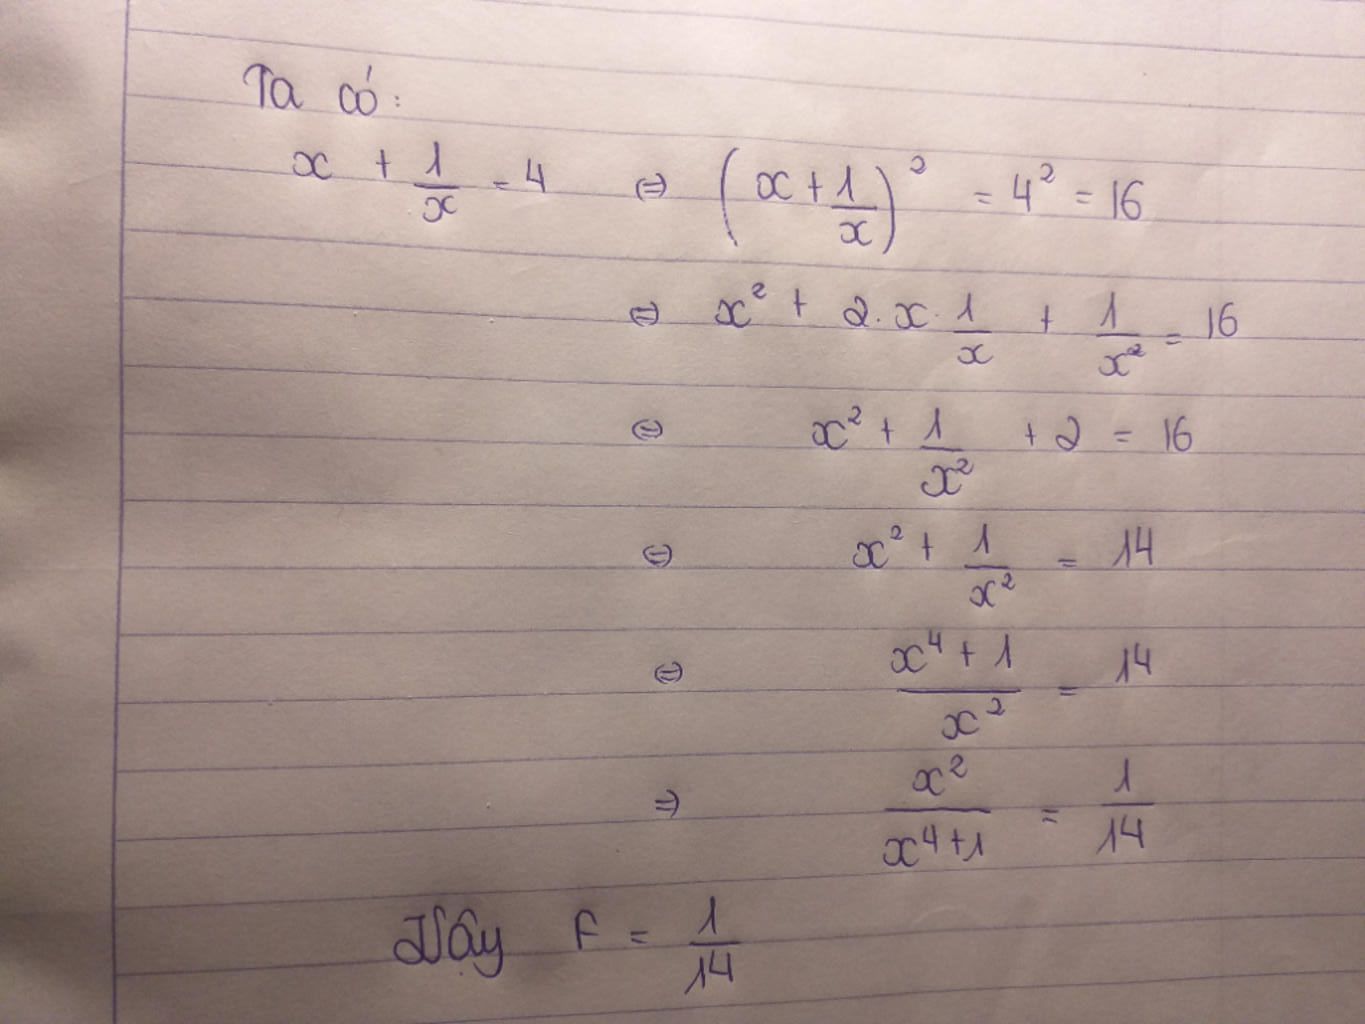 Ta có:
x + 1/x = 4 ⇔ (x + 1/x)² = 4² = 16
⇔ x² + 2.x.1/x + 1/x² = 16
⇔ x² + 1/x² + 2 = 16
⇔ x² + 1/x² = 14
⇔ (x⁴ + 1)/x² = 14
⇒ x²/(x⁴+1) = 1/14
Vậy F = 1/14